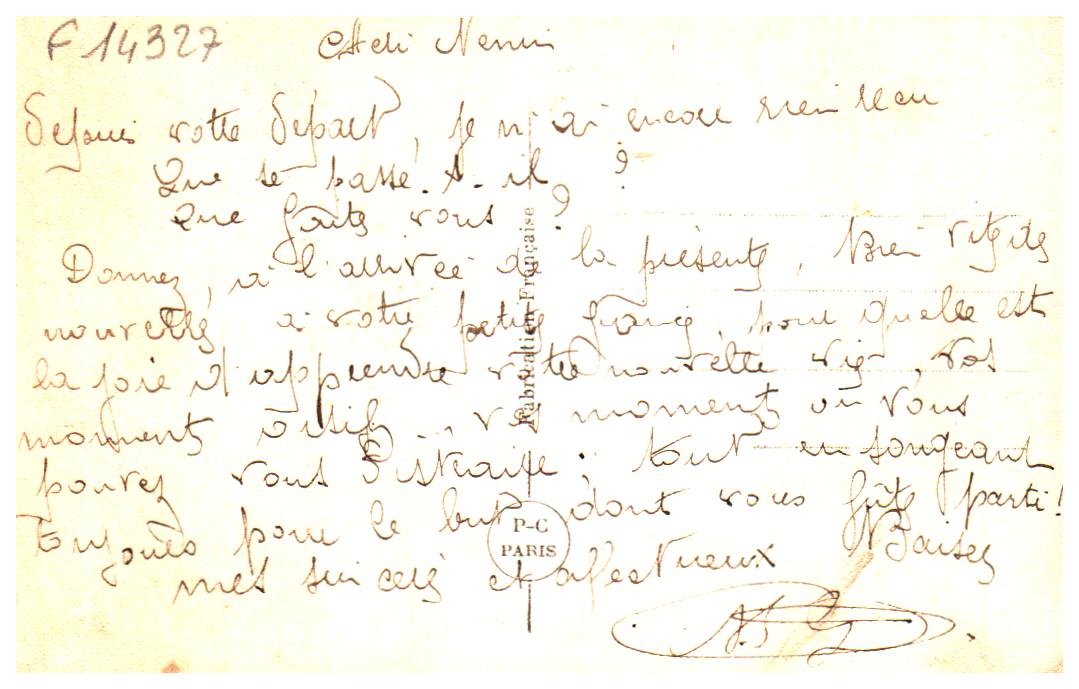 F 14327
Depuis votre départ, je n'ai encore rien
Que se passe-t-il ?
Que faites vous ?
Donnez, à l'arrivée de la présente, Bien vite
nouvelles, à votre petite, pour quelle est
la joie d'apprendre votre nouvelle vie, vos
moments oisifs, vos moments où vous
pouvez vous distraire ; tout en songeant
toujours pour le but dont vous faites parti !
mes sincères et affectueux Baisers
Fabrication Française
P-C
PARIS